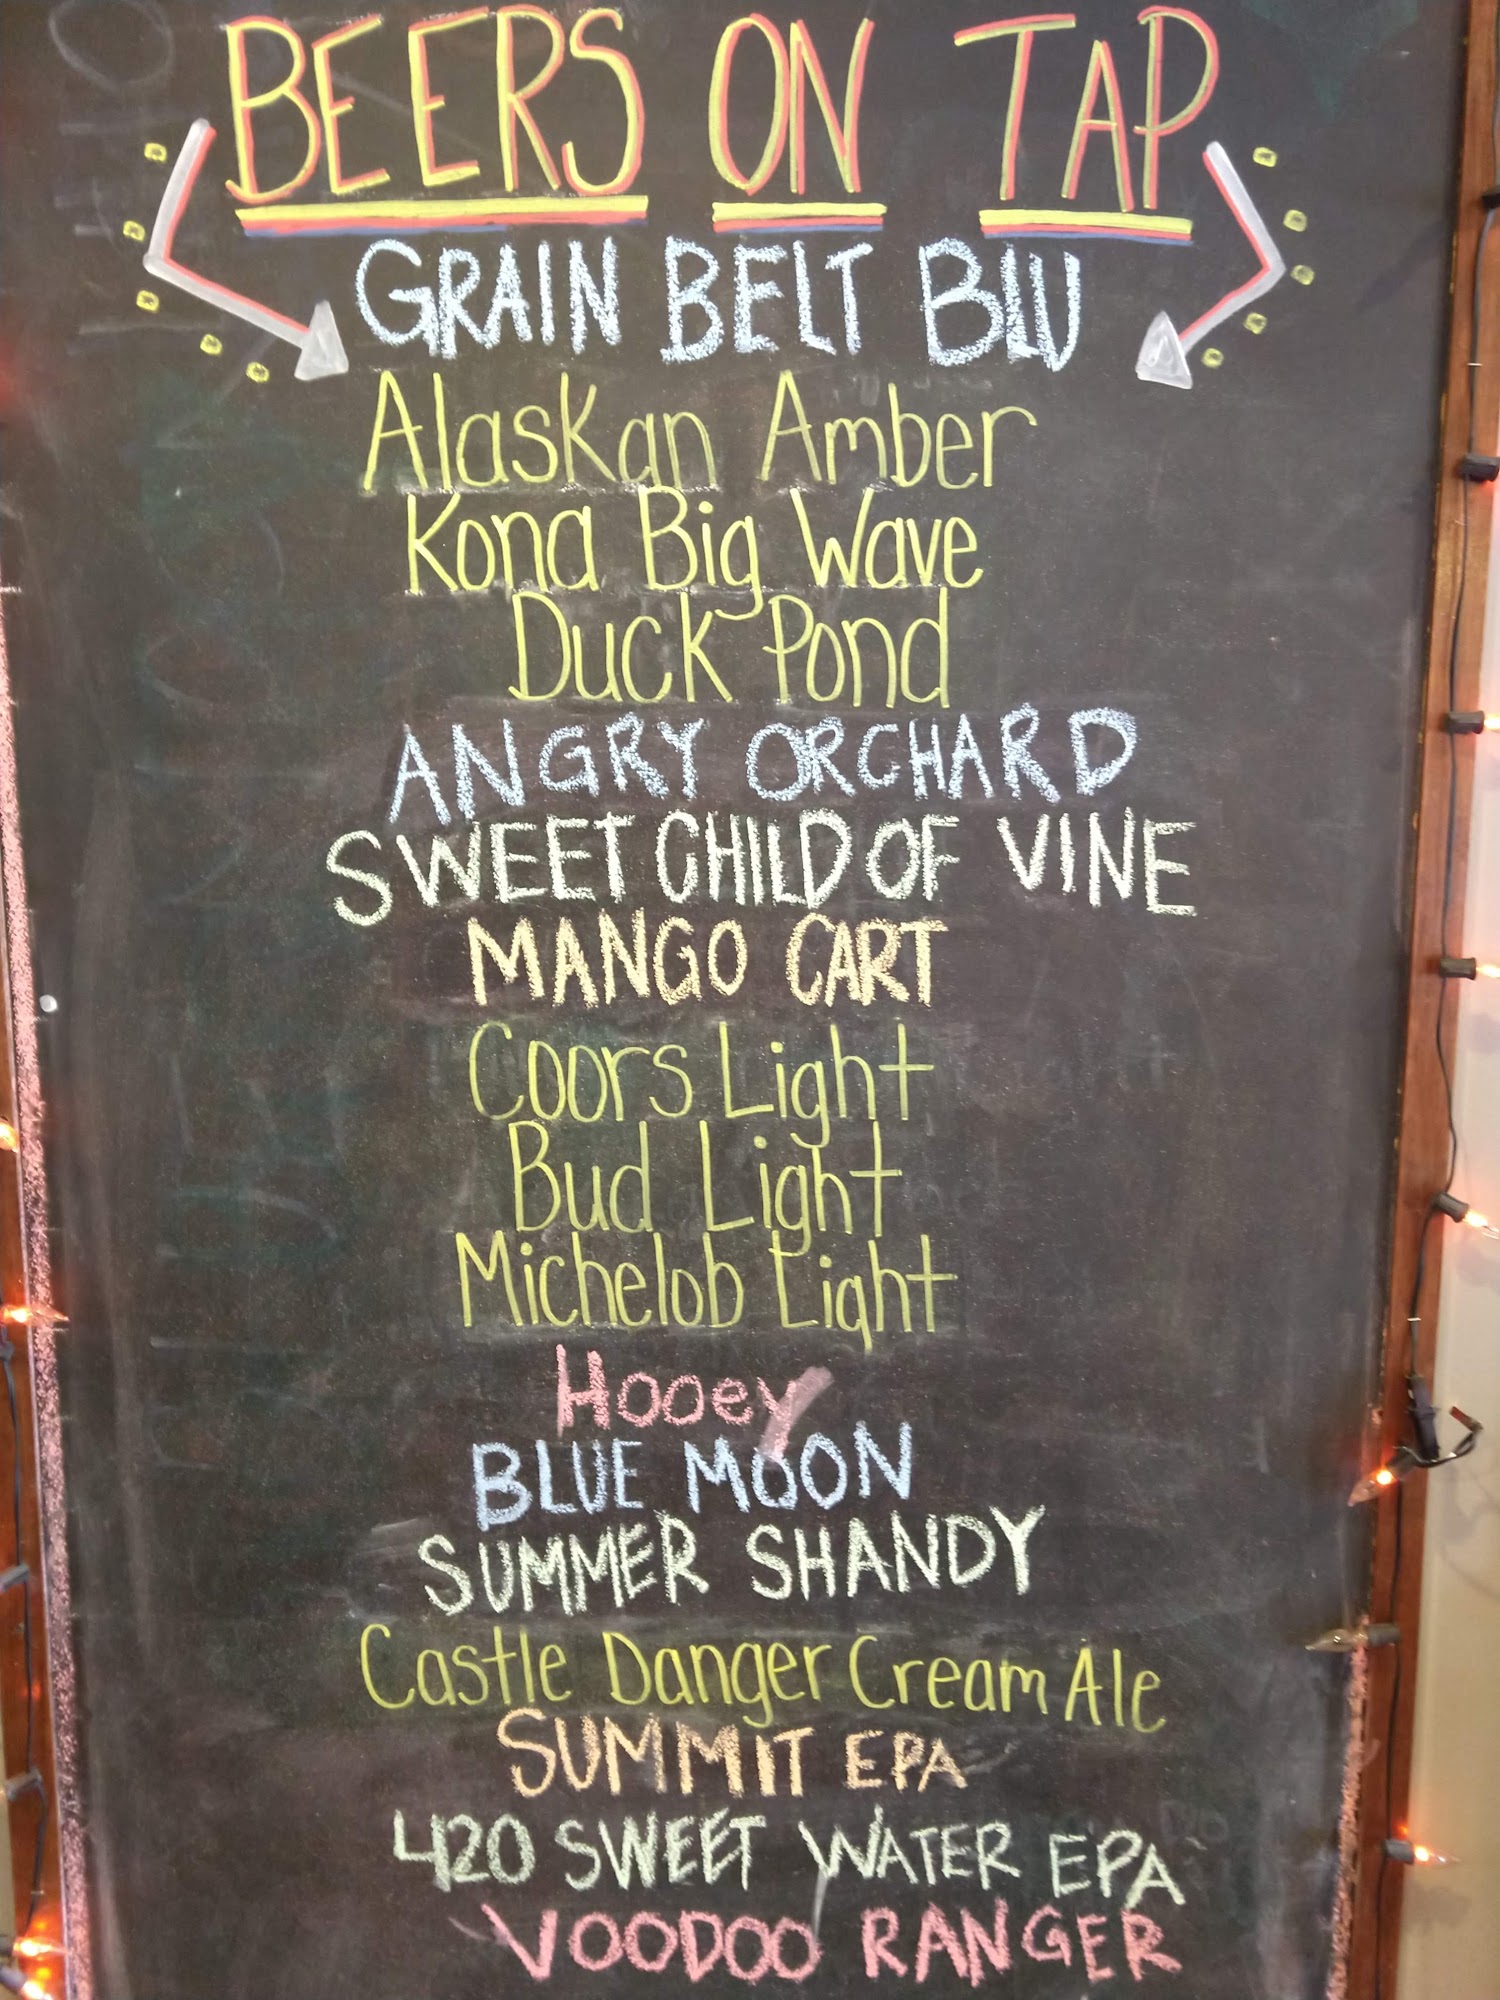 BEERS ON TAP
GRAIN BELT BLU
Alaskan Amber
Kona Big Wave
Duck Pond
ANGRY ORCHARD
SWEET CHILD OF VINE
MANGO CART
Coors Light
Bud Light
Michelob Light
Hooey
BLUE MOON
SUMMER SHANDY
Castle Danger Cream Ale
SUMMIT EPA
420 SWEET WATER EPA
VOODOO RANGER